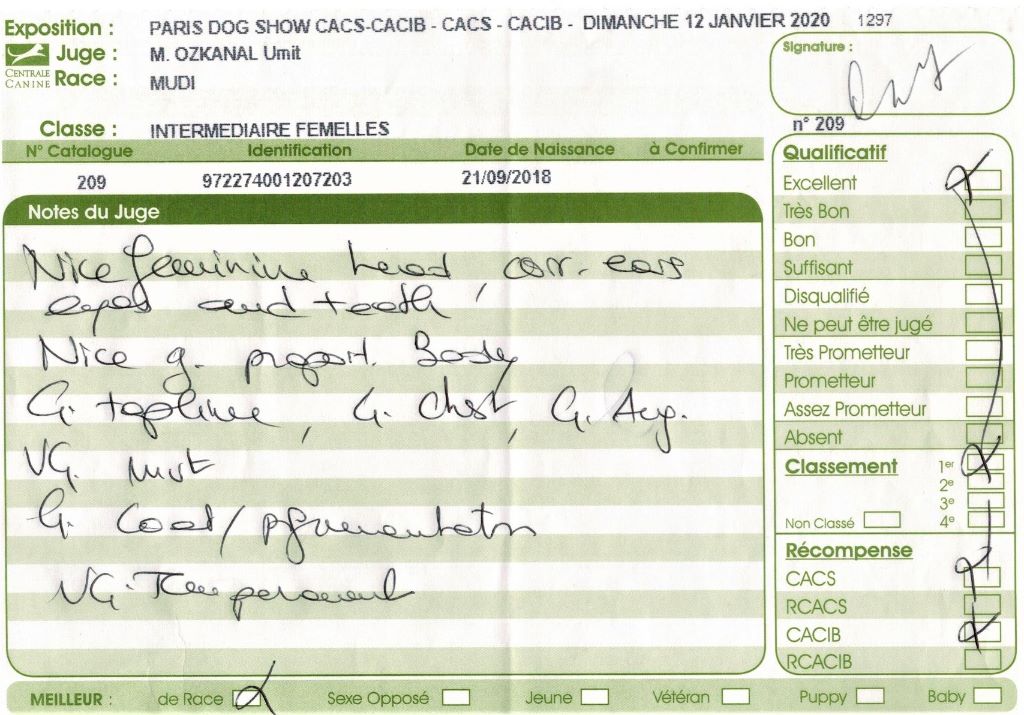 Exposition : PARIS DOG SHOW CACS-CACIB - CACS - CACIB - DIMANCHE 12 JANVIER 2020 1297
Juge : M. OZKANAL Umit
CENTRALE CANINE
Race : MUDI
Signature :
Classe : INTERMEDIAIRE FEMELLES
n° 209
N° Catalogue Identification Date de Naissance à Confirmer
209 972274001207203 21/09/2018
Notes du Juge
Nice feminine head, corr. ears
eyes and teeth
Nice g. proport. Body
G. topline, G. Chest, G. Ang.
VG. mvt
G. Coat/pigmentation
VG. Temperament
Qualificatif
Excellent
Très Bon
Bon
Suffisant
Disqualifié
Ne peut être jugé
Très Prometteur
Prometteur
Assez Prometteur
Absent
Classement 1er
2e
3e
Non Classé 4e
Récompense
CACS
RCACS
CACIB
RCACIB
MEILLEUR : de Race Sexe Opposé Jeune Vétéran Puppy Baby